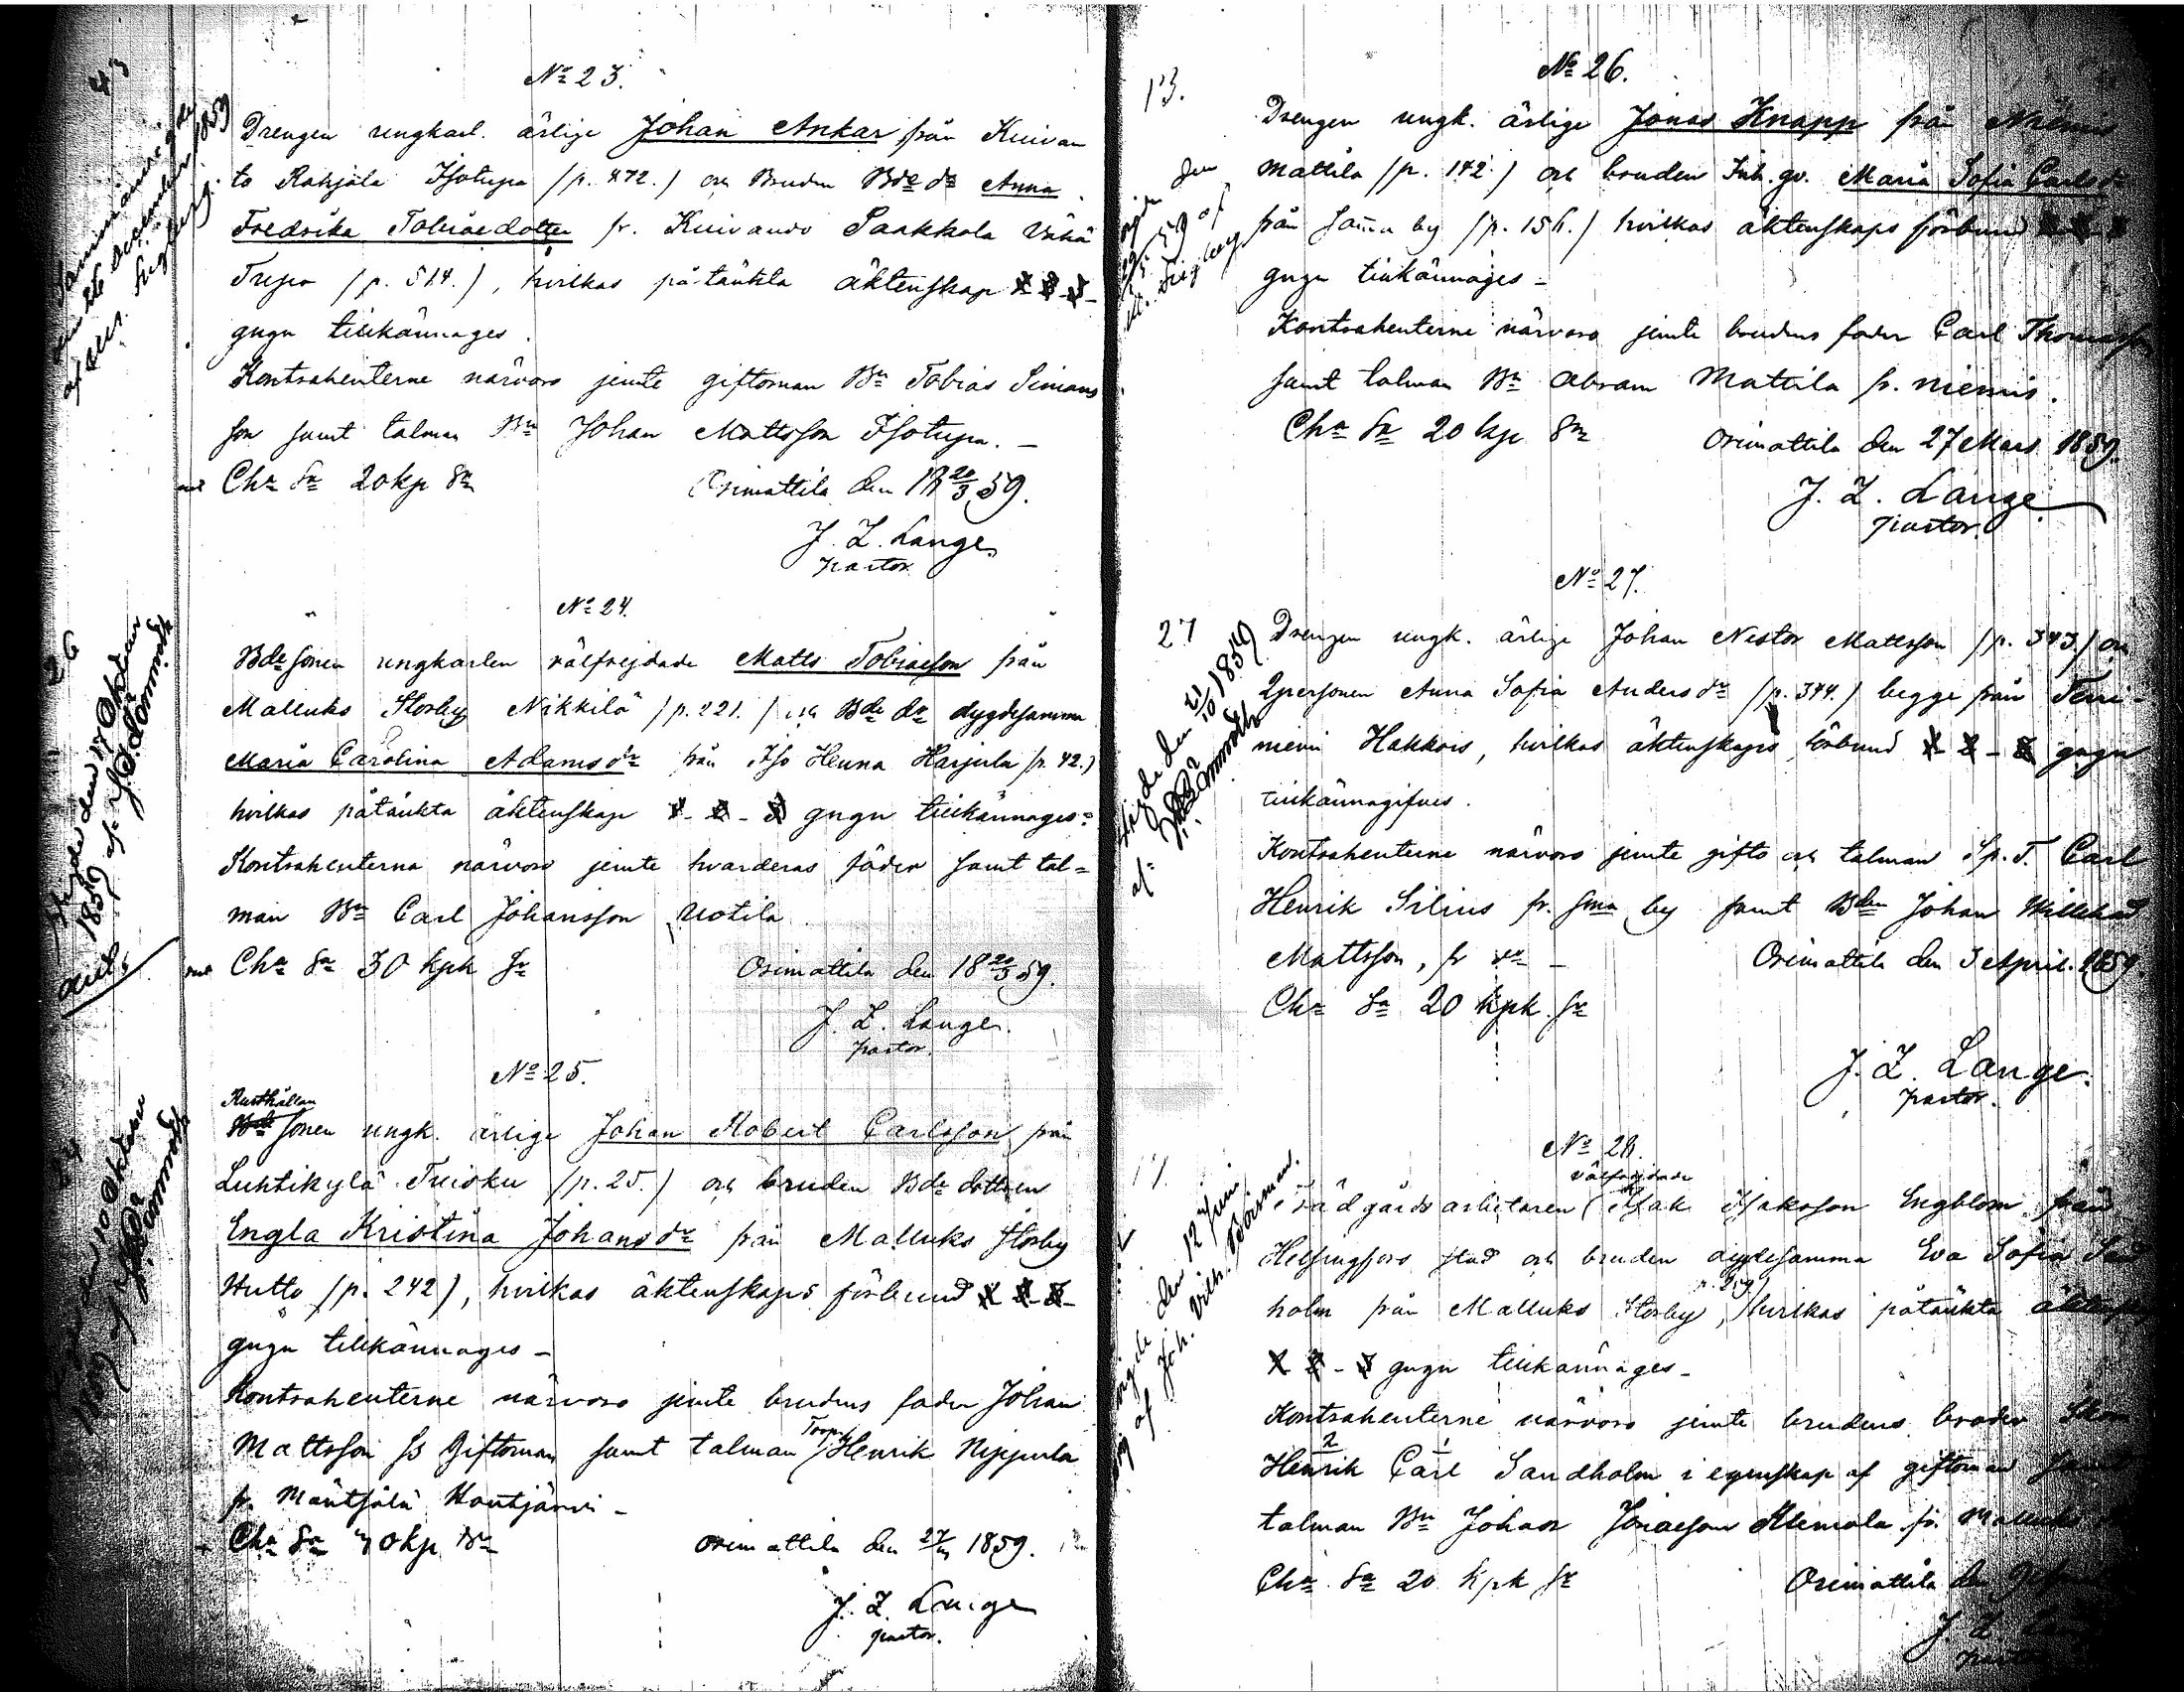 43
Sammanvigde
den 26te december 1859
af
No 23.
Drengen ungkarl. ärlige Johan Ankar från Kuivan
to Rahjala Isotupa (p. 472.) och Bruden Bde dr Anna
Fredrika Tobiaedotter fr. Kuivando Saakkola Vähä
Tupa (p. 514.), hvilkas påtänkta äktenskap 1-2-3-
gngn tillkännages.
Kontrahenterne närvoro jemte giftoman Bn Tobias Simons
son samt talman Bn Johan Mattsson Isotupa. –
Cha Sa 20 kp Sr
Orimattila den 18 20/3 59.
J. Z. Lange
pastor
26
Vigde den 17 Oktober
1859 af
No 24.
Bde sonen ungkarlen välfrejdade Matts Tobiaeson från
Malluks Storby Nikkilä (p. 221.) och Bde dr dygdesamma
Maria Carolina Adamsdr från Iso Henna Harjula (p. 42.)
hvilkas påtänkta äktenskap 1-2-3 gngn tillkännages:
Kontrahenterna närvoro jemte hvarderas fäder samt tal=
man Bn Carl Johansson Uotila
Cha Sa 30 kpk Sr
Orimattila den 18 20/3 59.
J. Z. Lange.
pastor.
den 10 Oktober
No 25.
Rusthållar
Bde sonen ungk. ärlige Johan Robert Carlsson från
Luhtikylä Tuisku (p. 25.) och bruden Bde dottren
Engla Kristina Johansdr från Malluks Storby
Hutto (p. 242), hvilkas äktenskaps förbund 1-2-3-
gngn tillkännages –
Kontrahenterne närvoro jemte brudens fader Johan
Mattsson ss Giftoman samt talman Torp. Henrik Nippula
fr. Mäntsälä Hautjärvi –
Cha Sa 30 kp Sr
Orimattila den 27/3 1859.
J. Z. Lange
pastor.
13.
No 26.
Drengen ungk. ärlige Jonas Knapp från Niemis
Mattila (p. 142.) och bruden Inh. qv. Maria Sofia Carlsdr
från samma by (p. 156.) hvilkas äktenskaps förbund 1-2-3
gngn tillkännages –
Kontrahenterne närvoro jemte brudens fader Carl Thomasson
samt talman Bn Abram Mattila fr. Niemis.
Cha Sa 20 kp Sr
Orimattila den 27 Mars 1859.
J. Z. Lange
pastor.
27
Vigde den 21/10 1859
af
No 27.
Drengen ungk. ärlige Johan Nestor Mattsson (p. 343.) och
Qpersonen Anna Sofia Andersdr (p. 344.) begge från Terri-
niemi Hakkois, hvilkas äktenskaps förbund 1-2-3 gngn
tillkännagifves.
Kontrahenterne närvoro jemte gifto och talman Sp. T. Carl
Henrik Silius fr. sma by samt Bden Johan Willehad
Mattsson, fr dr –
Orimattila den 3 April. 1859
Cha Sa 20 kpk Sr
J. Z. Lange.
pastor.
17.
Vigde den 12 Juni
af Joh. Vilh. Forsman.
No 28.
välfrejdade
Trädgårdsarbetaren Isak Isaksson Engblom från
Helsingfors stad och bruden dygdesamma Eva Sofia Sand
holm från Malluks Storby, p. 259) hvilkas påtänkta äktenskap
1-2-3 gngn tillkännages –
Kontrahenterne närvoro jemte brudens broder
Henrik Carl Sandholm i egenskap af giftoman samt
talman Bn Johan Jonaeson Klemola fr. Malluks
Cha Sa 20 kpk Sr
Orimattila den
J. Z.
pastor